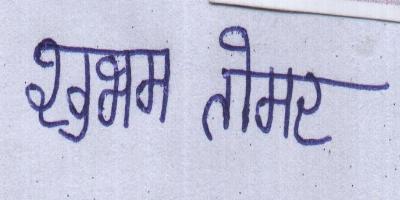 शुभम तोमर